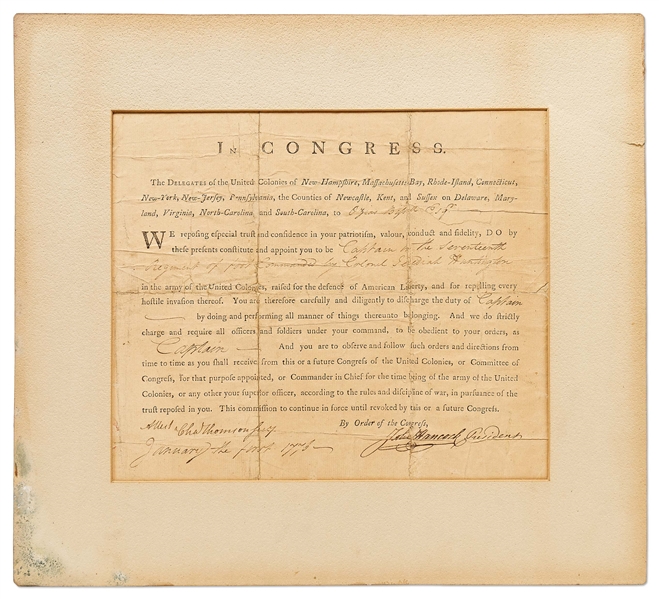 IN CONGRESS.
The DELEGATES of the United Colonies of New-Hampshire, Massachusetts Bay, Rhode-Island, Connecticut,
New-York, New-Jersey, Pennsylvania, the Counties of Newcastle, Kent, and Sussex on Delaware, Mary-
land, Virginia, North-Carolina and South-Carolina, to Ozias Bissell Esqr
WE reposing especial trust and confidence in your patriotism, valour, conduct and fidelity, DO by
these presents constitute and appoint you to be Captain in the Seventeenth
Regiment of foot commanded by Colonel Jedediah Huntington
in the army of the United Colonies, raised for the defence of American Liberty, and for repelling every
hostile invasion thereof. You are therefore carefully and diligently to discharge the duty of Captain
— by doing and performing all manner of things thereunto belonging. And we do strictly
charge and require all officers and soldiers under your command, to be obedient to your orders, as
Captain — And you are to observe and follow such orders and directions from
time to time as you shall receive from this or a future Congress of the United Colonies, or Committee of
Congress, for that purpose appointed, or Commander in Chief for the time being of the army of the United
Colonies, or any other your superior officer, according to the rules and discipline of war, in pursuance of the
trust reposed in you. This commission to continue in force until revoked by this or a future Congress.
By Order of the Congress,
Attest Cha Thomson Secy
John Hancock President
January the first 1776 —